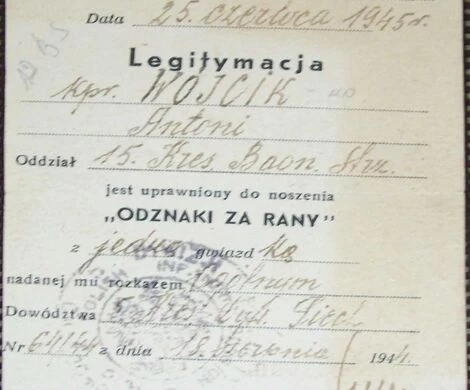 Data 25. czerwca 1945 r.
Legitymacja
kpr. WÓJCIK
Antoni
Oddział 15. Kres. Baon. Strz.
jest uprawniony do noszenia
„ODZNAKI ZA RANY"
z jedną gwiazd ką
nadanej mu rozkazem Ogólnym
Dowództwa 5. Kres. Dyw. Piech.
Nr 64/44 z dnia 18. sierpnia 1944 r.